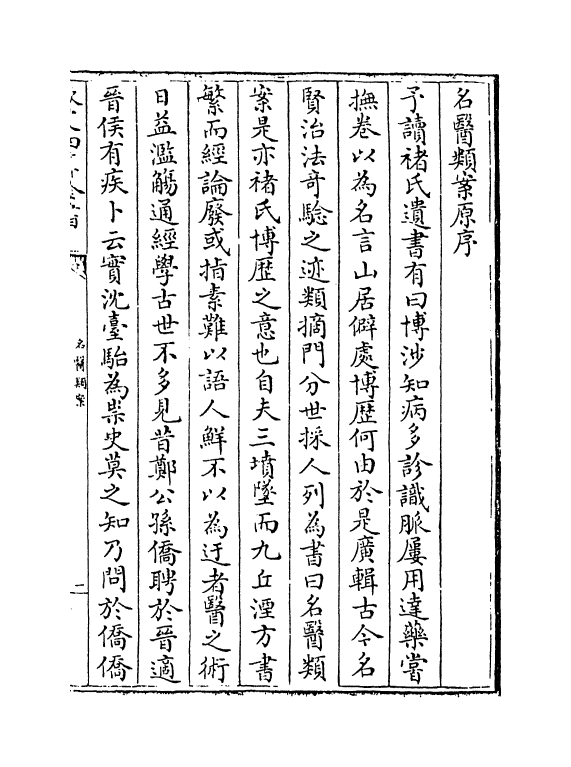 名醫類案原序
予讀禇氏遺書有曰博涉知病多診識脈屢用達藥嘗
撫卷以為名言山居僻處博歴何由於是廣輯古今名
賢治法奇驗之迹類摘門分世採人列為書曰名醫類
案是亦禇氏博歴之意也自夫三墳墜而九丘湮方書
繁而經論廢或指素難以語人鮮不以為迂者醫之術
日益濫觴通經學古世不多見昔鄭公孫僑聘於晉適
晉侯有疾卜云實沈臺駘為祟史莫之知乃問於僑僑
名醫類案
二